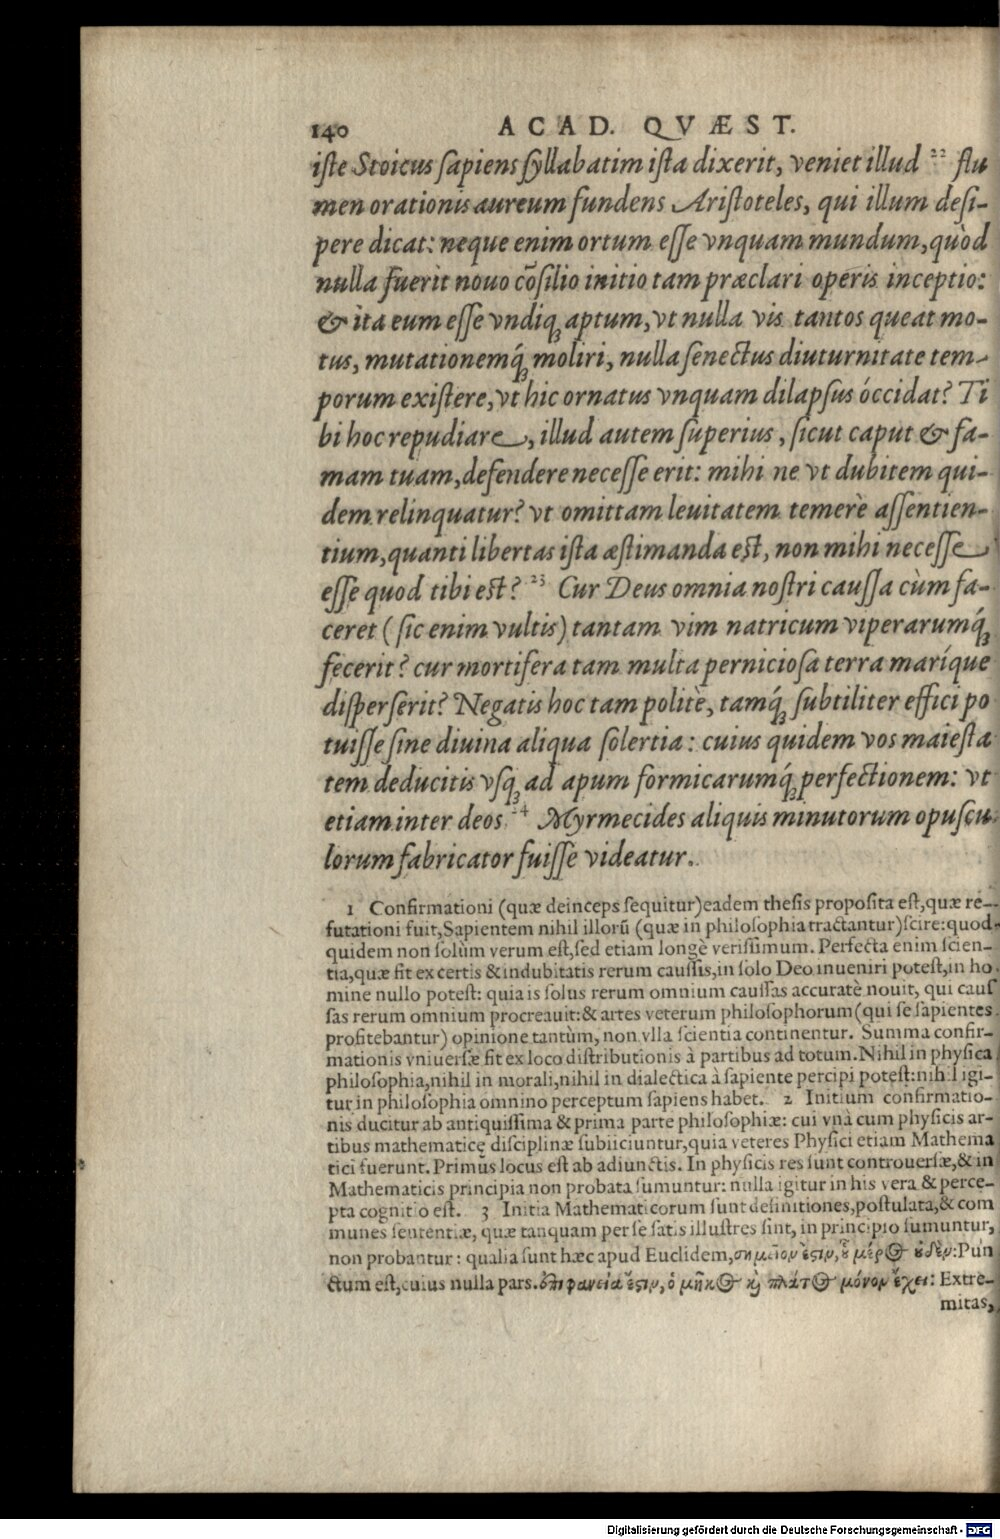 140 ACAD. QVÆST.
iste Stoicus sapiens syllabatim ista dixerit, veniet illud 22 flu
men orationis aureum fundens Aristoteles, qui illum desi-
pere dicat: neque enim ortum esse vnquam mundum, quòd
nulla fuerit nouo cōsilio initio tam præclari operis inceptio:
& ita eum esse vndiq; aptum, vt nulla vis tantos queat mo-
tus, mutationemq́; moliri, nulla senectus diuturnitate tem-
porum existere, vt hic ornatus vnquam dilapsus óccidat? Ti
bi hoc repudiare, illud autem superius, sicut caput & fa-
mam tuam, defendere necesse erit: mihi ne vt dubitem qui-
dem relinquatur? vt omittam leuitatem temerè assentien-
tium, quanti libertas ista æstimanda est, non mihi necesse
esse quod tibi est? 23 Cur Deus omnia nostri caussa cùm fa-
ceret (sic enim vultis) tantam vim natricum viperarumq́;
fecerit? cur mortifera tam multa perniciosa terra maríque
disperserit? Negatis hoc tam politè, tamq́; subtiliter effici po
tuisse sine diuina aliqua solertia: cuius quidem vos maiesta
tem deducitis vsq; ad apum formicarumq́; perfectionem: vt
etiam inter deos 24 Myrmecides aliquis minutorum opuscu-
lorum fabricator fuisse videatur.
1 Confirmationi (quæ deinceps sequitur) eadem thesis proposita est, quæ re-
futationi fuit, Sapientem nihil illorū (quæ in philosophia tractantur) scire: quod
quidem non solùm verum est, sed etiam longè verissimum. Perfecta enim scien-
tia, quæ fit ex certis & indubitatis rerum caussis, in solo Deo inueniri potest, in ho
mine nullo potest: quia is solus rerum omnium caussas accuratè nouit, qui caus
sas rerum omnium procreauit: & artes veterum philosophorum (qui se sapientes
profitebantur) opinione tantùm, non vlla scientia continentur. Summa confir-
mationis vniuersæ fit ex loco distributionis à partibus ad totum. Nihil in physica
philosophia, nihil in morali, nihil in dialectica à sapiente percipi potest: nihil igi-
tur in philosophia omnino perceptum sapiens habet. 2 Initium confirmatio-
nis ducitur ab antiquissima & prima parte philosophiæ: cui vnà cum physicis ar-
tibus mathematicę disciplinæ subiiciuntur, quia veteres Physici etiam Mathema
tici fuerunt. Primus locus est ab adiunctis. In physicis res sunt controuersæ, & in
Mathematicis principia non probata sumuntur: nulla igitur in his vera & perce-
pta cognitio est. 3 Initia Mathematicorum sunt definitiones, postulata, & com
munes sententiæ, quæ tanquam per se satis illustres sint, in principio sumuntur,
non probantur: qualia sunt hæc apud Euclidem, σημεῖον ἐστιν, οὗ μέρος οὐδέν: Pun
ctum est, cuius nulla pars. ἐπιφανεία ἐστιν, ὃ μῆκος καὶ πλάτος μόνον ἔχει: Extre-
mitas,
Digitalisierung gefördert durch die Deutsche Forschungsgemeinschaft - DFG